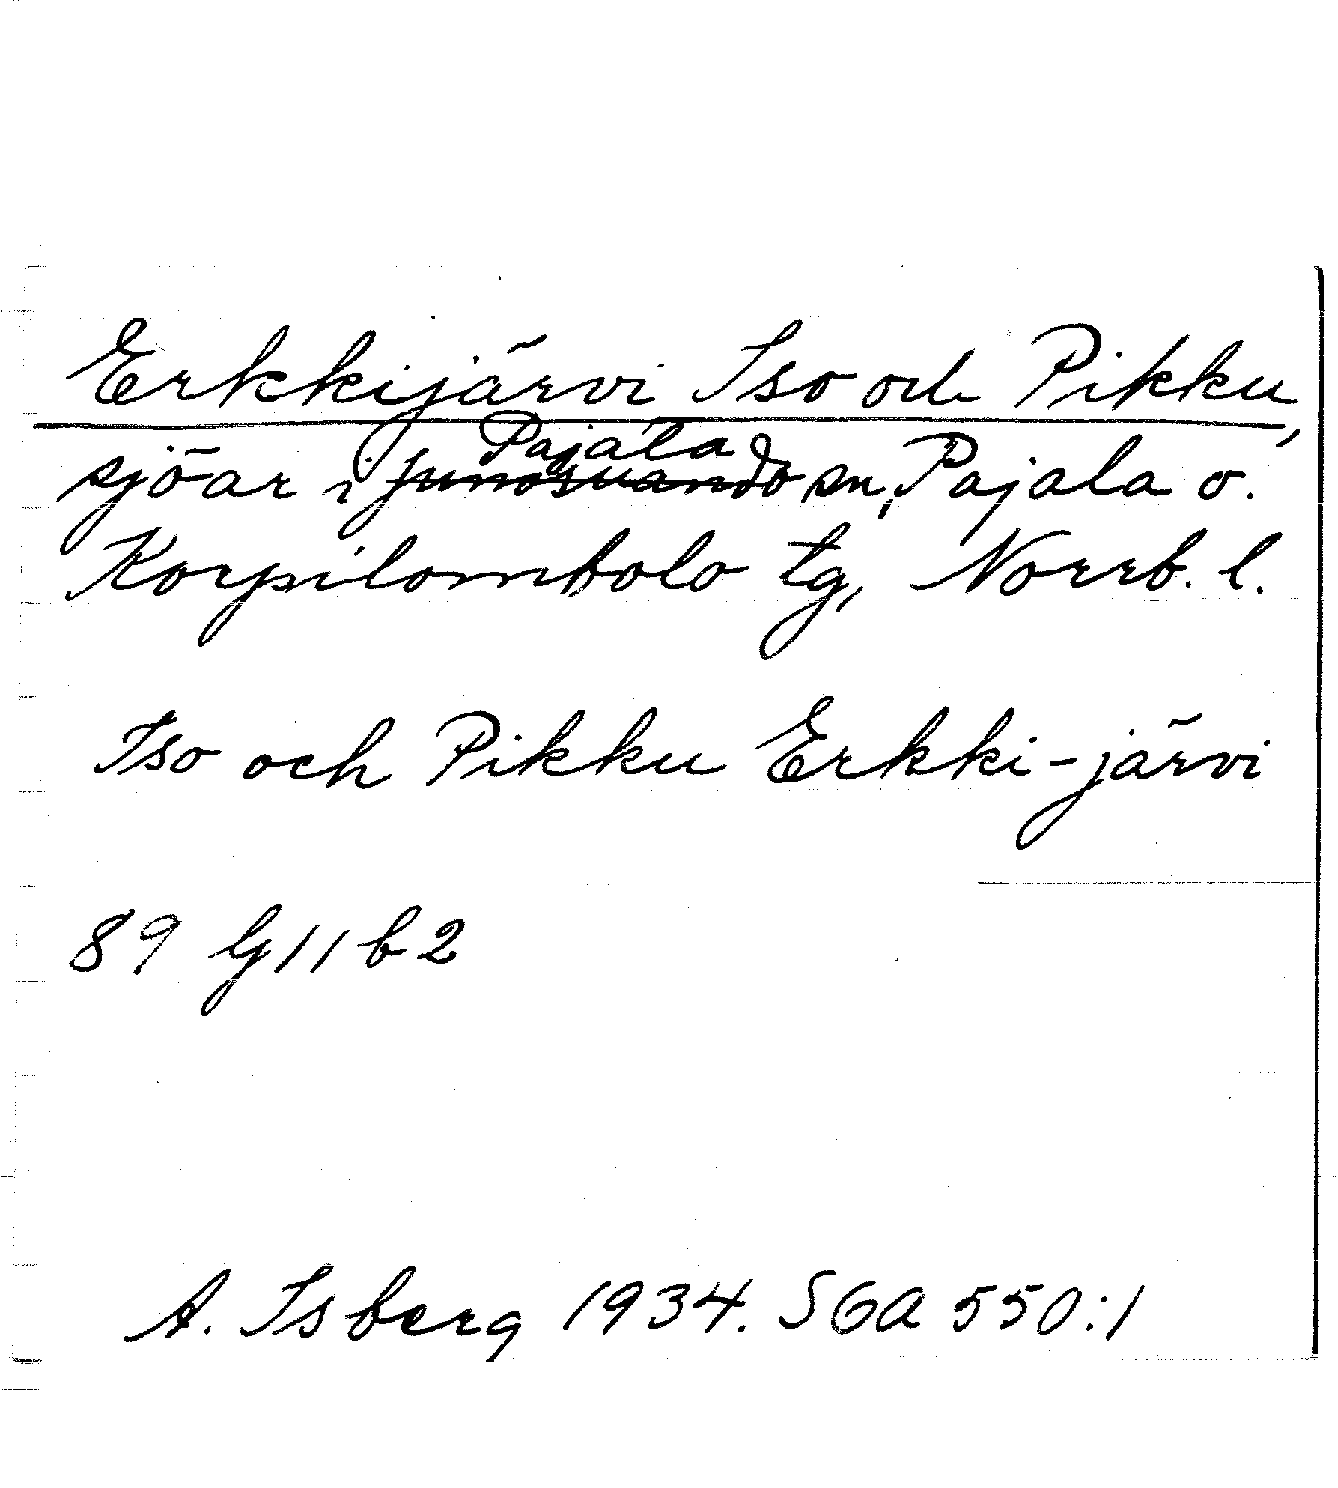 Erkkijärvi Iso och Pikku,
sjöar i Junosuando Pajala sn, Pajala o.
Korpilombolo tg, Norrb. l.
Iso och Pikku Erkki-järvi
89 G11b2
A. Isberg 1934. SGA 550:1